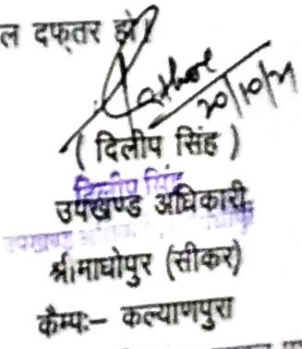 ल दफ्तर हो
20/10/21
( दिलीप सिंह )
दिलीप सिंह
उपखण्ड अधिकारी
उपखण्ड
श्रीमाधोपुर (सीकर)
कैम्पः– कल्याणपुरा